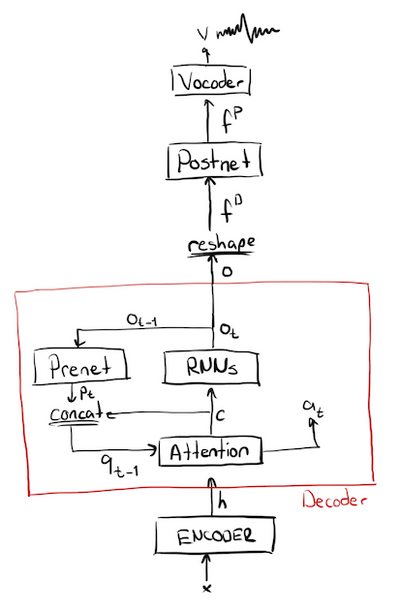 v
Vocoder
f^P
Postnet
f^D
reshape
o
o_{t-1}
o_t
Prenet
RNNs
p_t
concate
c
a_t
q_{t-1}
Attention
h
Decoder
ENCODER
x